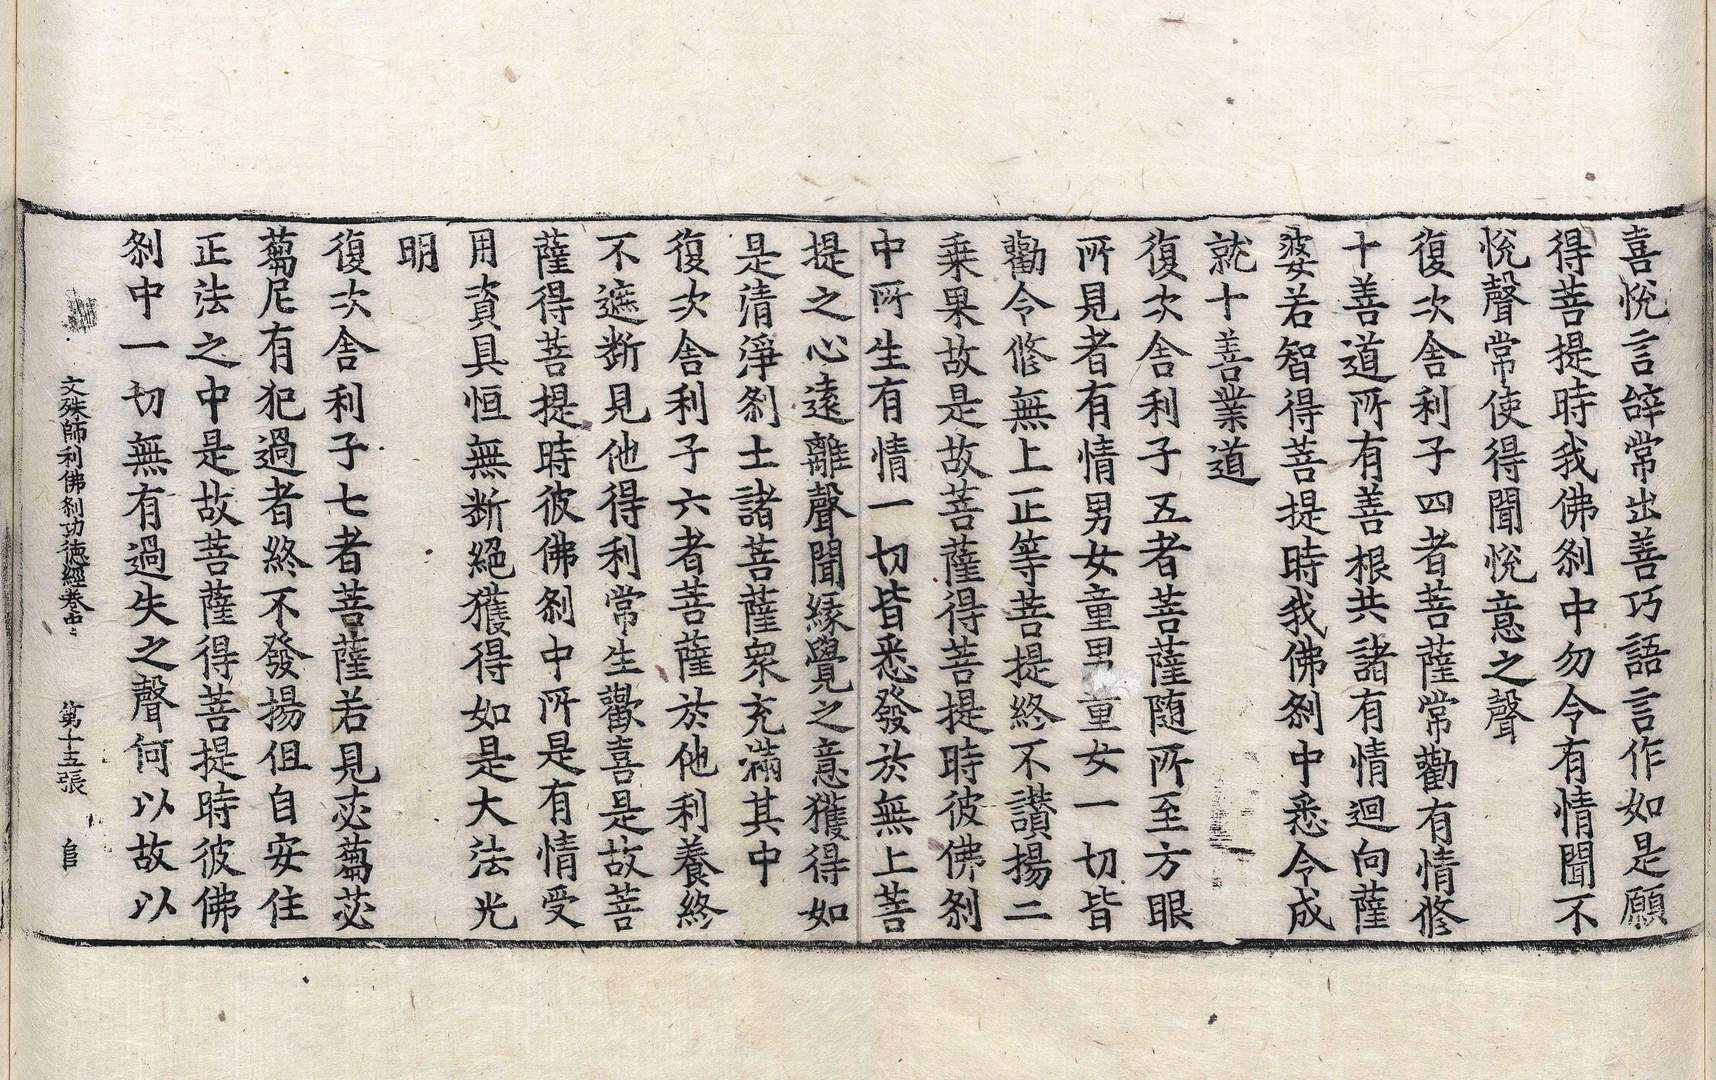 喜悅言辝常出善巧語言作如是願
得菩提時我佛刹中勿令有情聞不
悅聲常使得聞悅意之聲
復次舍利子四者菩薩常勸有情修
十善道所有善根共諸有情迴向薩
婆若智得菩提時我佛刹中悉令成
就十善業道
復次舍利子五者菩薩隨所至方眼
所見者有情男女童男童女一切皆
勸令修無上正等菩提終不讃揚二
乗果故是故菩薩得菩提時彼佛刹
中所生有情一切皆悉發於無上菩
提之心遠離聲聞緣覺之意獲得如
是清淨刹土諸菩薩衆充滿其中
復次舍利子六者菩薩於他利養終
不遮斷見他得利常生歡喜是故菩
薩得菩提時彼佛刹中所是有情受
用資具恒無斷絕獲得如是大法光
明
復次舍利子七者菩薩若見苾蒭苾
蒭尼有犯過者終不發揚但自安住
正法之中是故菩薩得菩提時彼佛
刹中一切無有過失之聲何以故以
文殊師利佛刹功德經卷中 第十五張